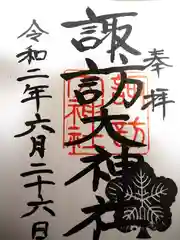 奉拝
諏訪大神社
令和二年六月二十六日